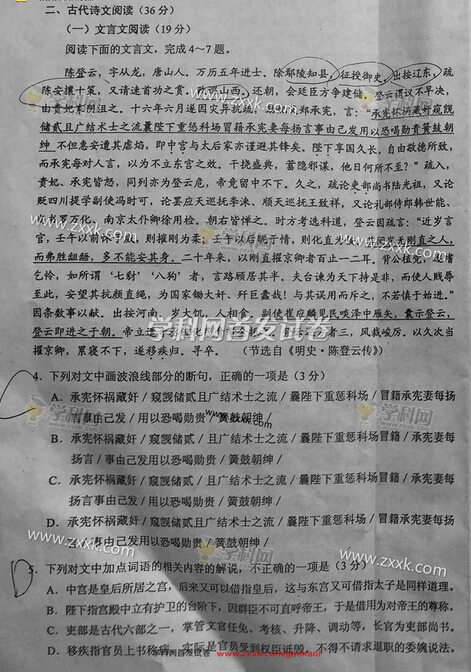 二、古代诗文阅读（36分）
（一）文言文阅读（19分）
阅读下面的文言文，完成4～7题。
陈登云，字从龙，唐山人。万历五年进士。除鄢陵知县，征授御史，出按辽东，疏
陈安攘十策，又请速首功之赏。改巡山西。还朝，会廷臣方争建储。登云谓议不早决，
由贵妃家阴沮之。十六年六月遂因灾异抗疏，郑承宪，言：“承宪怀祸藏奸窥觊
储贰且广结术士之流曩陛下重惩科场冒籍承宪妻每扬言事由己发用以恐喝勋贵簧鼓朝
绅 不但惠安遭其虐焰，即中宫与太后家亦谨避其锋矣。陛下享国久长，自由敬德所致，
而承宪每对人言，以为不立东宫之效。干挠盛典，蓄隐邪谋，他日何所不至？”疏入，
贵妃、承宪皆怒，同列亦为登云危，帝竟留中不下。久之，疏论吏部尚书陆光祖，又论
贬四川提学副使冯时可，论罢应天巡抚李涞、顺天巡抚王致祥，又论礼部侍郎韩世能、
尚书罗万化、南京太仆卿徐用检。朝右皆惮之。时方考选科道，登云因疏言：“近岁言
官，壬午以前怵于威，则摧刚为柔；壬午以后昵于情，则化直为佞。其间岂无刚直之人，
而弗胜龃龉，多不能安其身。二十年来，以刚直擢京卿者百止一二耳。背公植党，逐嗜
乞怜，如所谓‘七豺’‘八狗’者，言路顾居其半。夫台谏为天下持是非，而使人贱辱
至此，安望其抗颜直绳，为国家锄大奸、歼巨蠹哉！与其误用而斥之，不若慎于始进。”
因条数事以献。出按河南。岁大饥，人相食。副使崔应麟见民啖泽中雁矢，囊示登云，
登云即进之于朝。帝立遣
者三，风裁峻厉。以久次当
擢京卿，累寝不下，遂移疾归。寻卒。 （节选自《明史·陈登云传》）
4．下列对文中画波浪线部分的断句，正确的一项是（3分）
A．承宪怀祸藏奸/窥觊储贰/且广结术士之流/曩陛下重惩科场/冒籍承宪妻每扬
言事由己发/用以恐喝勋贵/簧鼓朝绅/
B．承宪怀祸藏奸/窥觊储贰/且广结术士之流/曩陛下重惩科场冒籍/承宪妻每
扬言/事由己发用以恐喝勋贵/簧鼓朝绅/
C．承宪怀祸藏奸/窥觊储贰/且广结术士之流/曩陛下重惩科场冒籍/承宪妻每
扬言事由己发/用以恐喝勋贵/簧鼓朝绅/
D．承宪怀祸藏奸/窥觊储贰且广结术士之流/曩陛下重惩科场/冒籍承宪妻每扬
言/事由己发/用以恐喝勋贵/簧鼓朝绅/
5．下列对文中加点词语的相关内容的解说，不正确的一项是（3分）
A．中宫是皇后所居之宫，后来又可以借指皇后，这与东宫又可借指太子是同样道理。
B．陛下指宫殿中立有护卫的台阶下，因群臣不可直呼帝王，于是借用为对帝王的尊称。
C．吏部是古代六部之一，掌管文官任免、考核、升降、调动等，长官为吏部尚书。
D．移疾指官员上书称病，实际是官员受到权臣诋毁，不得不请求退职的委婉说法。
学科网首发试卷
www.zxxk.com